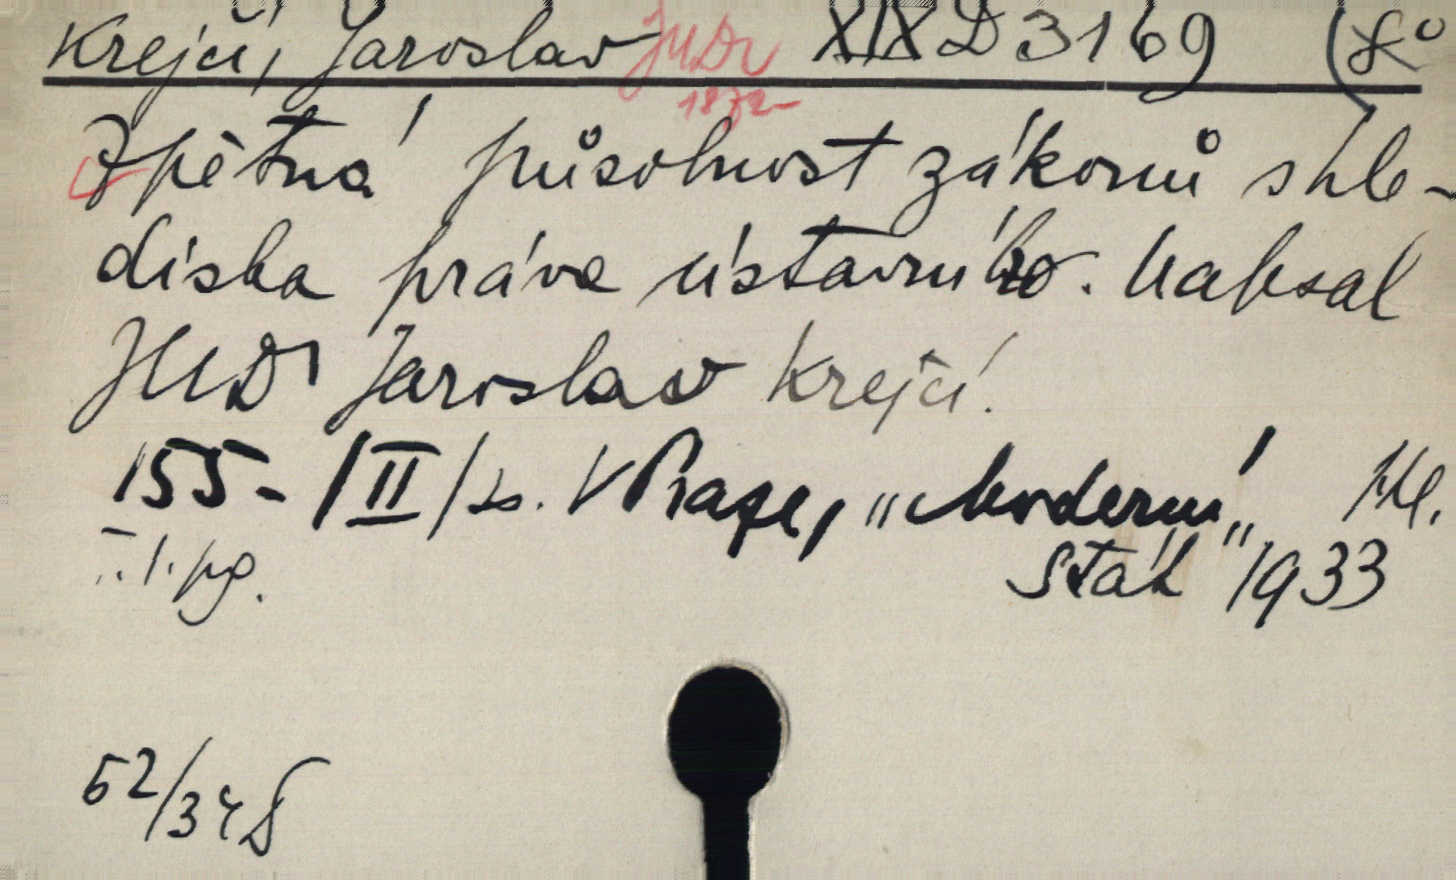 Krejčí, Jaroslav JUDr XIX D 3169 (8°
1872-
Zpětná působnost zákonů s hle-
diska práva ústavního. Napsal
JUDr Jaroslav Krejčí.
155 - /II/ s. V Praze, „Moderní
stát" 1933
I. 1. pg.
52/34 S